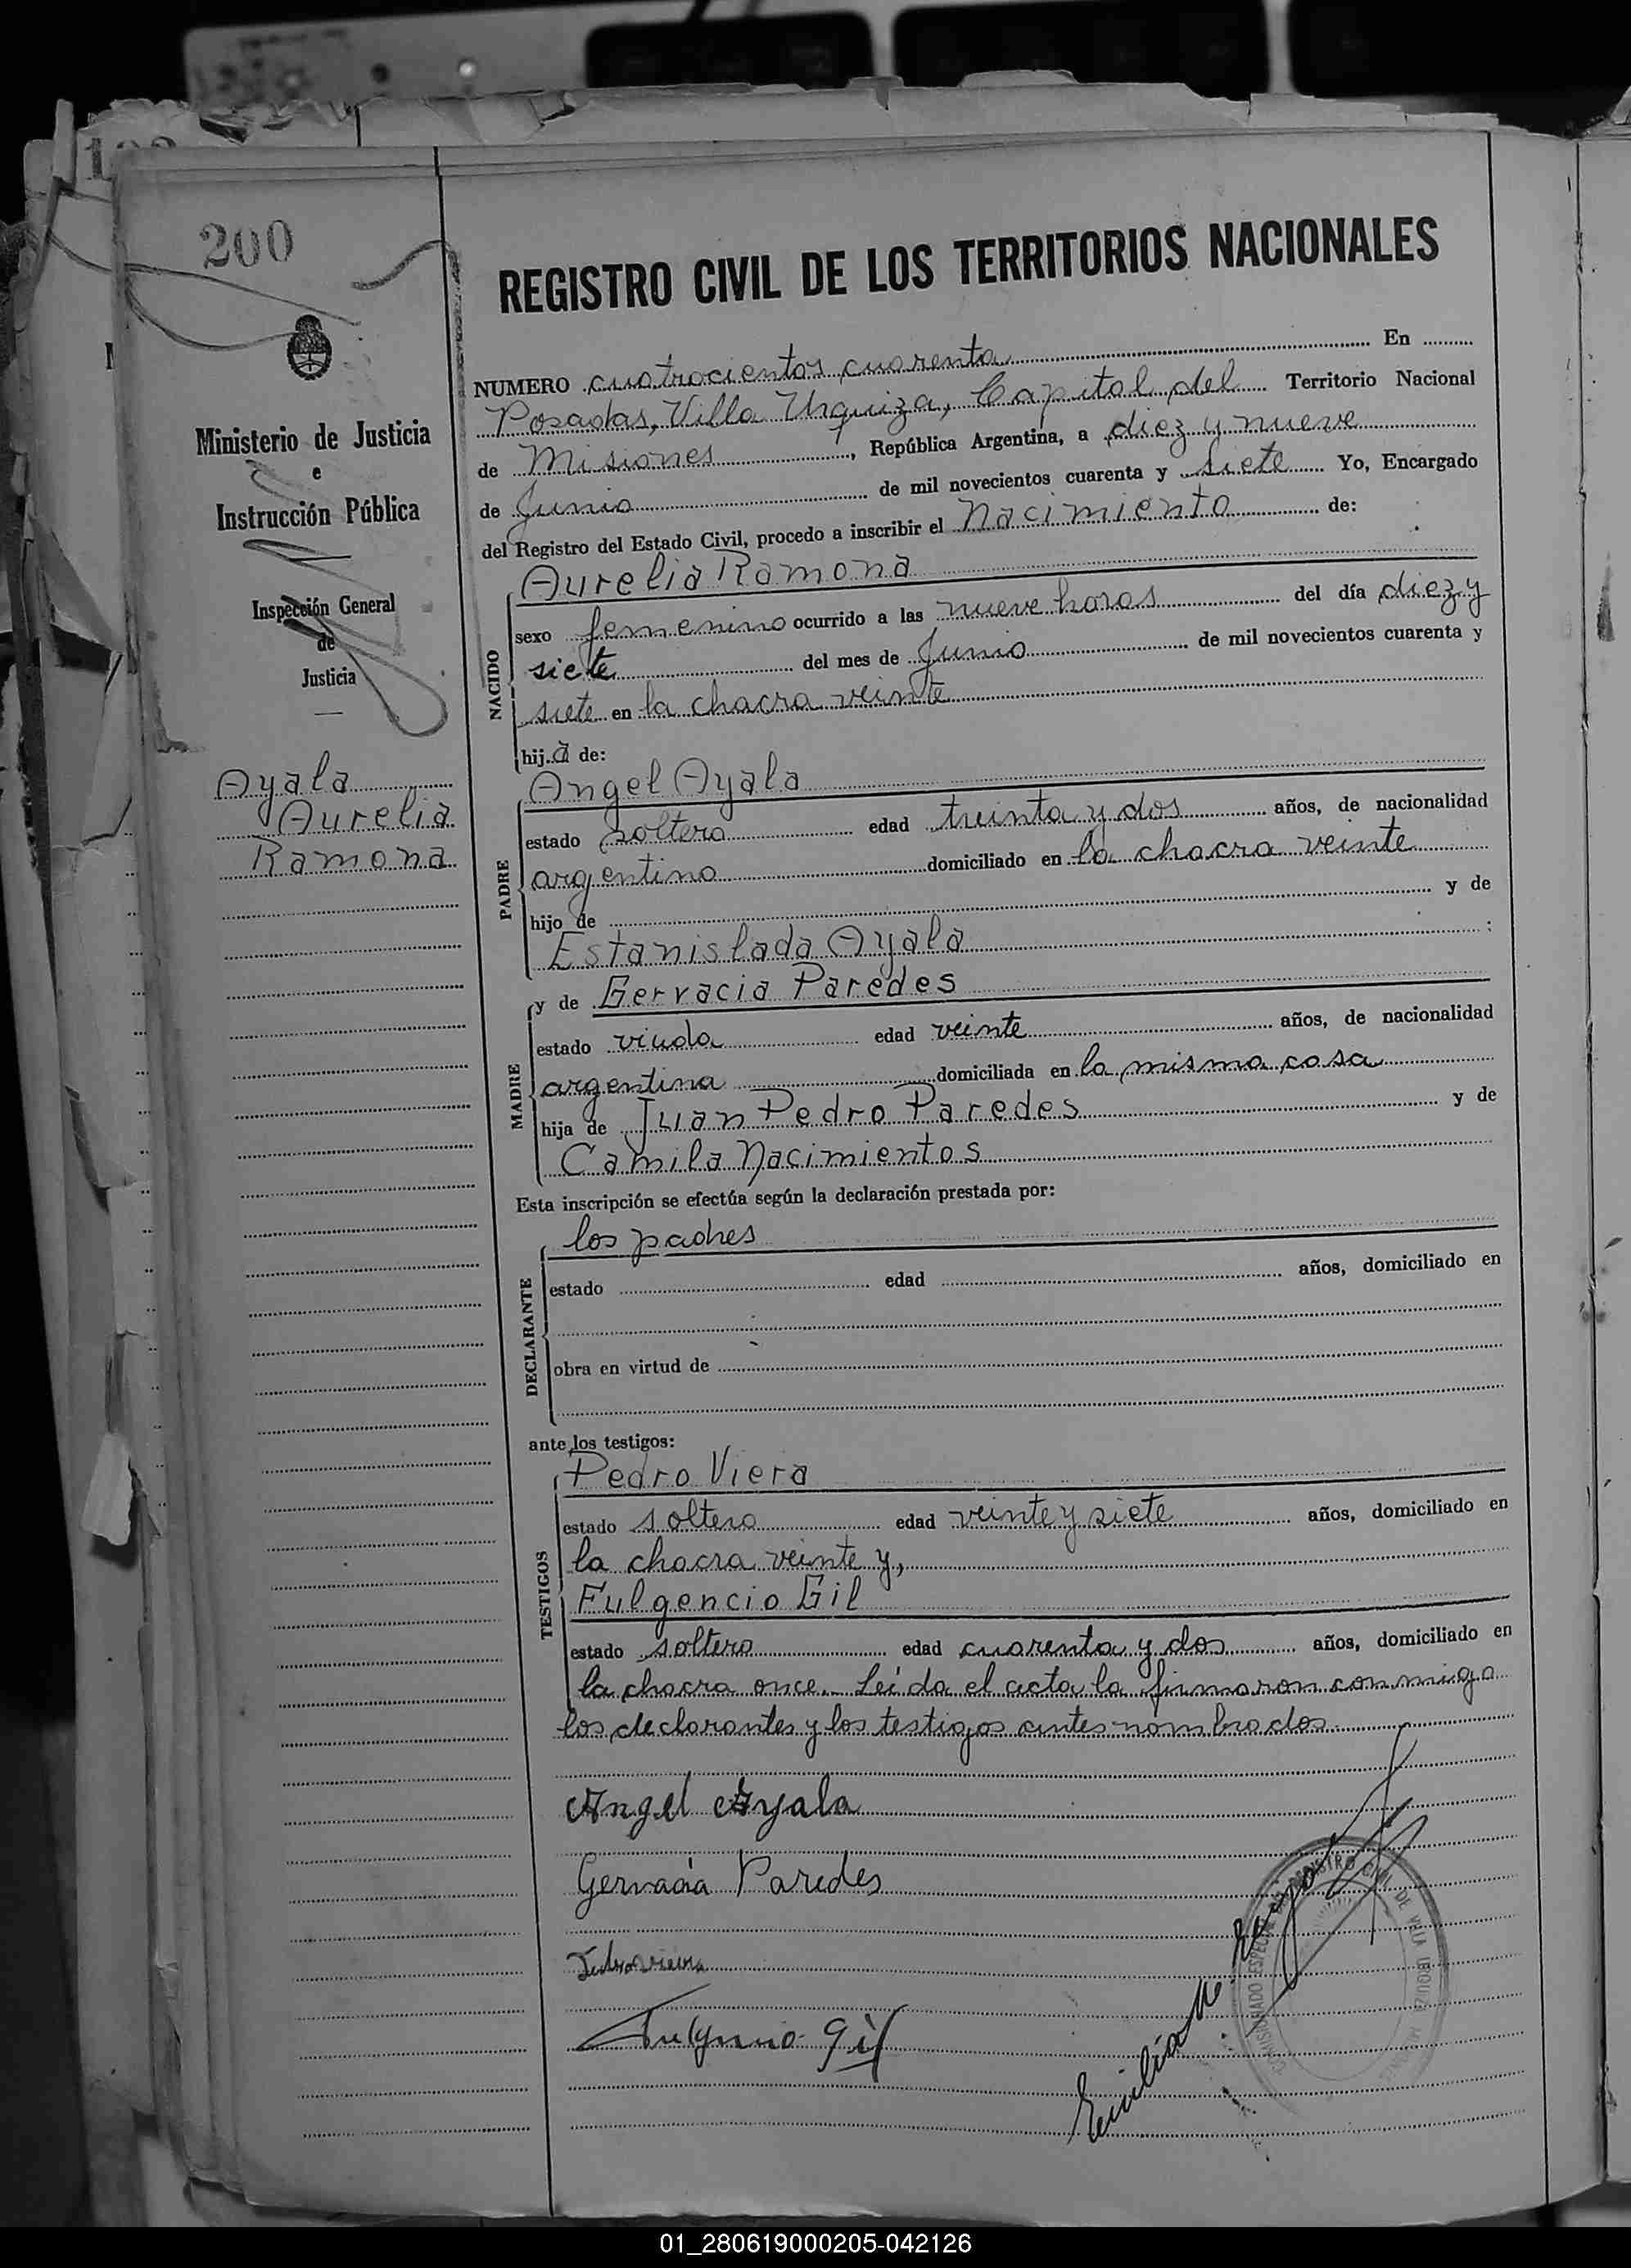 200
Ministerio de Justicia
e
Instrucción Pública
Inspección General
de
Justicia
Ayala
Aurelia
Ramona
REGISTRO CIVIL DE LOS TERRITORIOS NACIONALES
NUMERO cuatrocientos cuarenta En
Posadas, Villa Urquiza, Capital del Territorio Nacional
de Misiones, República Argentina, a diez y nueve
de Junio de mil novecientos cuarenta y siete Yo, Encargado
del Registro del Estado Civil, procedo a inscribir el Nacimiento de:
NACIDO
Aurelia Ramona
sexo femenino ocurrido a las nueve horas del día diez y
siete del mes de Junio de mil novecientos cuarenta y
siete en la chacra veinte
hija de:
PADRE
Angel Ayala
estado soltero edad treinta y dos años, de nacionalidad
argentino domiciliado en la chacra veinte
hijo de y de
Estanislada Ayala :
MADRE
y de Gervacia Paredes
estado viuda edad veinte años, de nacionalidad
argentina domiciliada en la misma casa
hija de Juan Pedro Paredes y de
Camila Nacimientos
Esta inscripción se efectúa según la declaración prestada por:
DECLARANTE
los padres
estado edad años, domiciliado en
obra en virtud de
ante los testigos:
TESTIGOS
Pedro Viera
estado soltero edad veinte y siete años, domiciliado en
la chacra veinte y,
Fulgencio Gil
estado soltero edad cuarenta y dos años, domiciliado en
la chacra once. Leída el acta la firmaron conmigo
los declarantes y los testigos antes nombrados.
Angel Ayala
Gervacia Paredes
Pedro Viera
Fulgencio Gil
Emilia M.
REGISTRO CIVIL DE VILLA URQUIZA
01_280619000205-042126